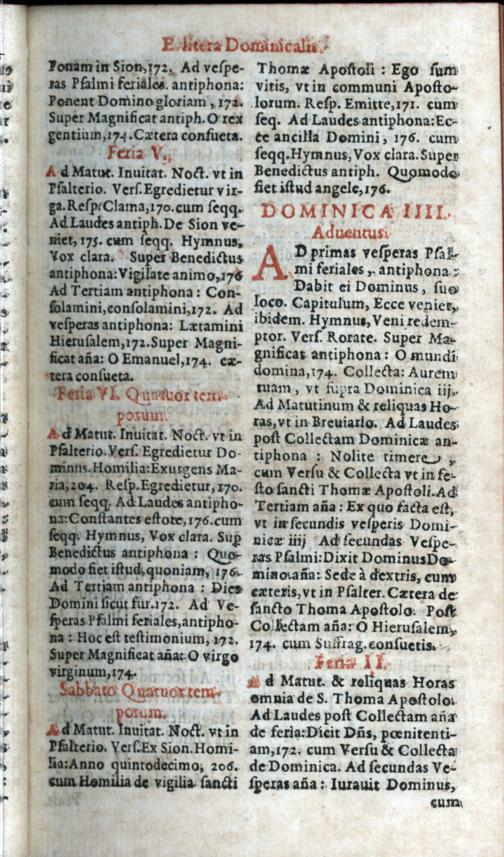 E. litera Dominicalis.
Ponam in Sion,172. Ad vespe-
ras Psalmi feriales. antiphona:
Ponent Domino gloriam, 172.
Super Magnificat antiph. O rex
gentium,174. Cætera consueta.
Feria V.
Ad Matut. Inuitat. Noct. vt in
Psalterio. Vers. Egredietur vir-
ga. Resp. Clama,170. cum seqq.
Ad Laudes antiph. De Sion ve-
niet, 175. cum seqq. Hymnus,
Vox clara. Super Benedictus
antiphona: Vigilate animo,176
Ad Tertiam antiphona: Con-
solamini, consolamini,172. Ad
vesperas antiphona: Lætamini
Hierusalem,172. Super Magni-
ficat aña: O Emanuel,174. cæ-
tera consueta.
Feria VI. Quatuor tem-
porum.
Ad Matut. Inuitat. Noct. vt in
Psalterio. Vers. Egredietur Do-
minus. Homilia: Exurgens Ma-
ria, 204. Resp. Egredietur, 170.
cum seqq. Ad Laudes antipho-
na: Constantes estote, 176. cum
seqq. Hymnus, Vox clara. Sup
Benedictus antiphona: Quo-
modo fiet istud, quoniam, 176.
Ad Tertiam antiphona: Dies
Domini sicut fur.172. Ad Ve-
speras Psalmi feriales, antipho-
na: Hoc est testimonium, 172.
Super Magnificat aña: O virgo
virginum,174.
Sabbato Quatuor tem-
porum.
Ad Matut. Inuitat. Noct. vt in
Psalterio. Vers. Ex Sion. Homi-
lia: Anno quintodecimo, 206.
cum Homilia de vigilia sancti
Thomæ Apostoli: Ego sum
vitis, vt in communi Aposto-
lorum. Resp. Emitte,171. cum
seq. Ad Laudes antiphona: Ec-
ce ancilla Domini, 176. cum
seqq. Hymnus, Vox clara. Super
Benedictus antiph. Quomodo
fiet istud angele,176.
DOMINICA IIII.
Aduentus.
AD primas vesperas Psal-
mi feriales, antiphona:
Dabit ei Dominus, suo
loco. Capitulum, Ecce veniet,
ibidem. Hymnus, Veni redem-
ptor. Vers. Rorate. Super Ma-
gnificat antiphona: O mundi
domina,174. Collecta: Aurem
tuam, vt supra Dominica iij.
Ad Matutinum & reliquas Ho-
ras, vt in Breuiario. Ad Laudes
post Collectam Dominicæ an-
tiphona: Nolite timere,
cum Versu & Collecta vt in fe-
sto sancti Thomæ Apostoli. Ad
Tertiam aña: Ex quo facta est,
vt in secundis vesperis Domi-
nicæ iiij Ad secundas Vespe-
ras Psalmi: Dixit Dominus Do-
mino. aña: Sede à dextris, cum
cæteris, vt in Psalter. Cætera de
sancto Thoma Apostolo. Post
Collectam aña: O Hierusalem,
174. cum Suffrag. consuetis.
Feria II.
Ad Matut. & reliquas Horas
omnia de S. Thoma Apostolo.
Ad Laudes post Collectam aña
de feria: Dicit Dñs, pœnitenti-
am,172. cum Versu & Collecta
de Dominica. Ad secundas Ve-
speras aña: Iurauit Dominus,
cum